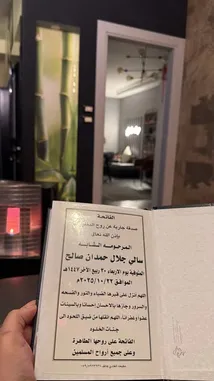 الفاتحة
صدقة جارية عن روح الشابة
بإذن الله تعالى
المرحومة الشابة
سالي جلال حمدان صالح
المتوفية يوم الاربعاء ٣٠ ربيع الآخر ١٤٤٧هـ
الموافق ٢٠٢٥/١٠/٢٢م
اللهم انزل على قبرها الضياء والنور والفسحه
والسرور وجازها بالاحسان إحسانا وبالسيئات
عفوا وغفرانا، اللهم انقلها من ضيق اللحود الى
جنات الخلود
الفاتحة على روحها الطاهرة
وعلى جميع أرواح المسلمين